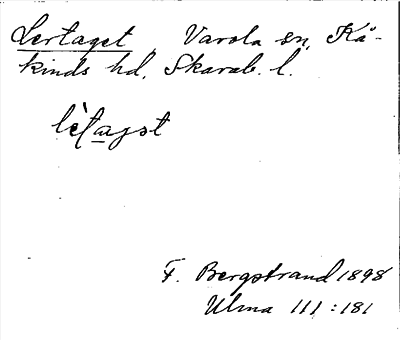 Lertaget Varola sn, Kå-
kinds hd, Skarab. l.
lètagst
F. Bergstrand 1898
Ulma 111:181